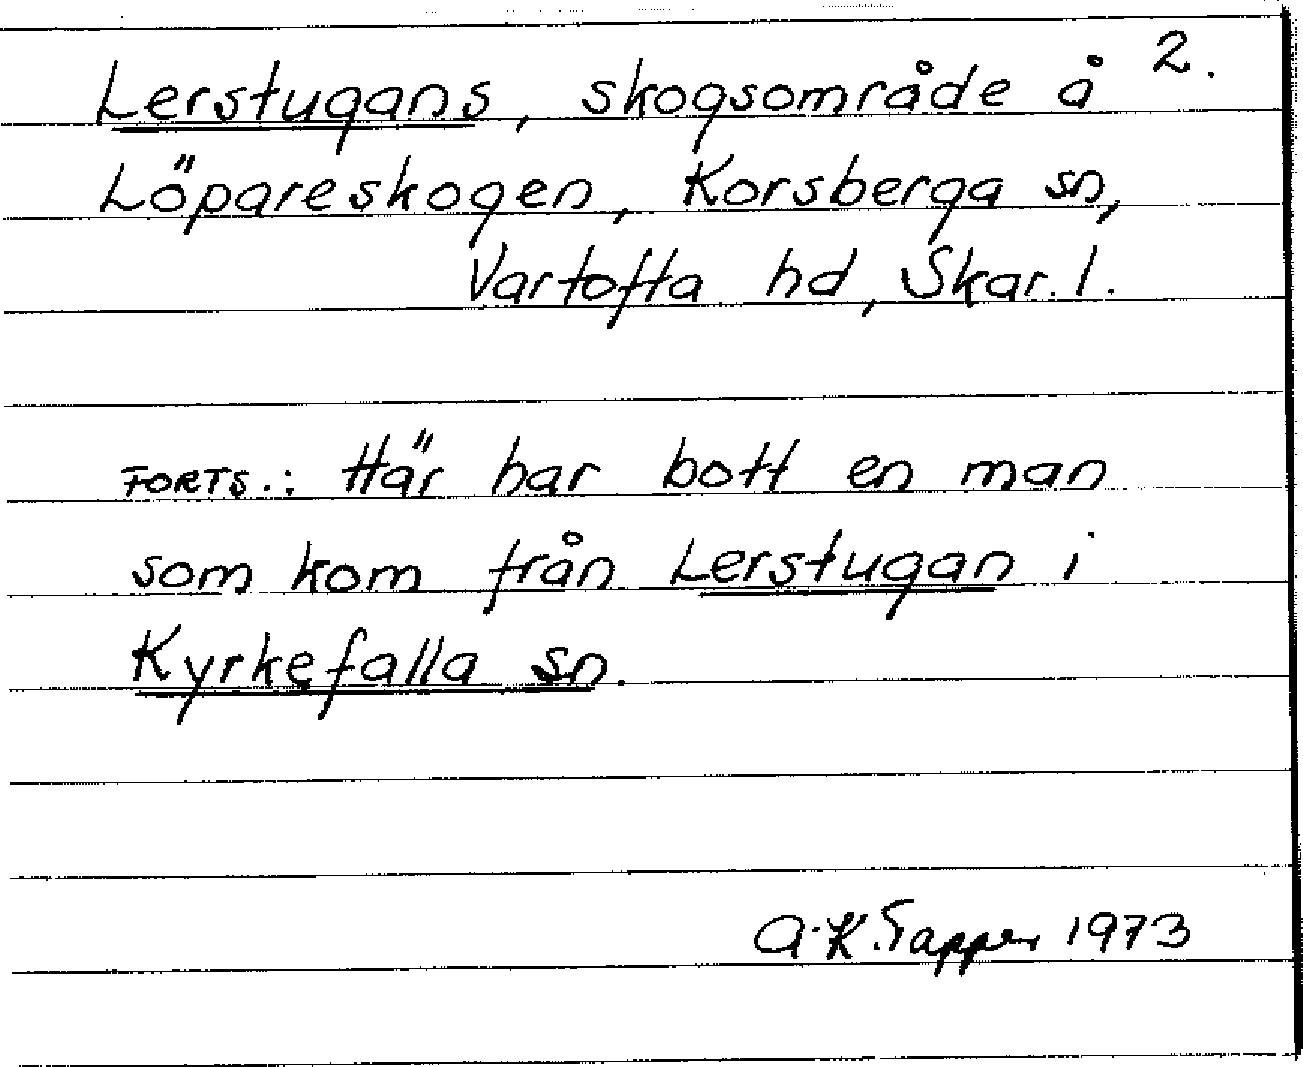 2.
Lerstugans, skogsområde å
Löpareskogen, Korsberga sn,
Vartofta hd, Skar. l.
FORTS.: Här har bott en man
som kom från Lerstugan i
Kyrkefalla sn.
A-K. Tapper 1973